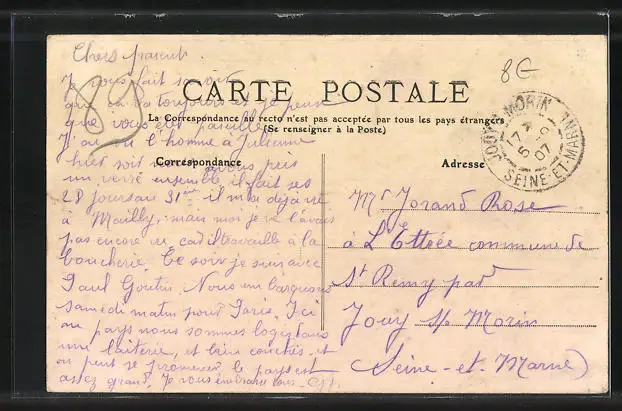 8G
89
CARTE POSTALE
La Correspondance au recto n'est pas acceptée par tous les pays étrangers
(Se renseigner à la Poste)
Correspondance
Adresse
JOUY-S-MORIN
17
5 -9
07
SEINE-ET-MARNE
Chers parent
Je vous fait savoir
que ça va toujours et je peux
que vous êtes pareille
J'ai vu l'homme à Julienne
hier soit nous avons pris
un verre ensemble il fait ses
28 jours au 31ème il m'a déjà vu
à Mailly, mais moi je ne l'avais
pas encore vu, car il travaille à la
boucherie. Ce soir je suis avec
Paul Goutin. Nous embarquons
samedi matin pour Paris. Ici
au pays nous sommes logés dans
une laiterie, et bien couchés, et
on peut se promener le pays est
assez grand. Je vous embrasse tous
Mr Jorand Rose
à L' commune de
St Remy par
Jouy s/ Morin
Seine-et-Marne)